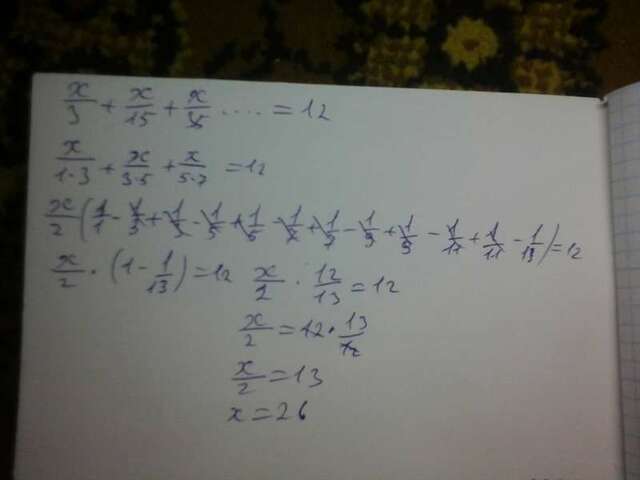 x/3 + x/15 + x/35 .... = 12
x/1·3 + x/3·5 + x/5·7 = 12
x/2 (1/1 - 1/3 + 1/3 - 1/5 + 1/5 - 1/7 + 1/7 - 1/9 + 1/9 - 1/11 + 1/11 - 1/13) = 12
x/2 · (1 - 1/13) = 12 x/2 · 12/13 = 12
x/2 = 12 · 13/12
x/2 = 13
x = 26